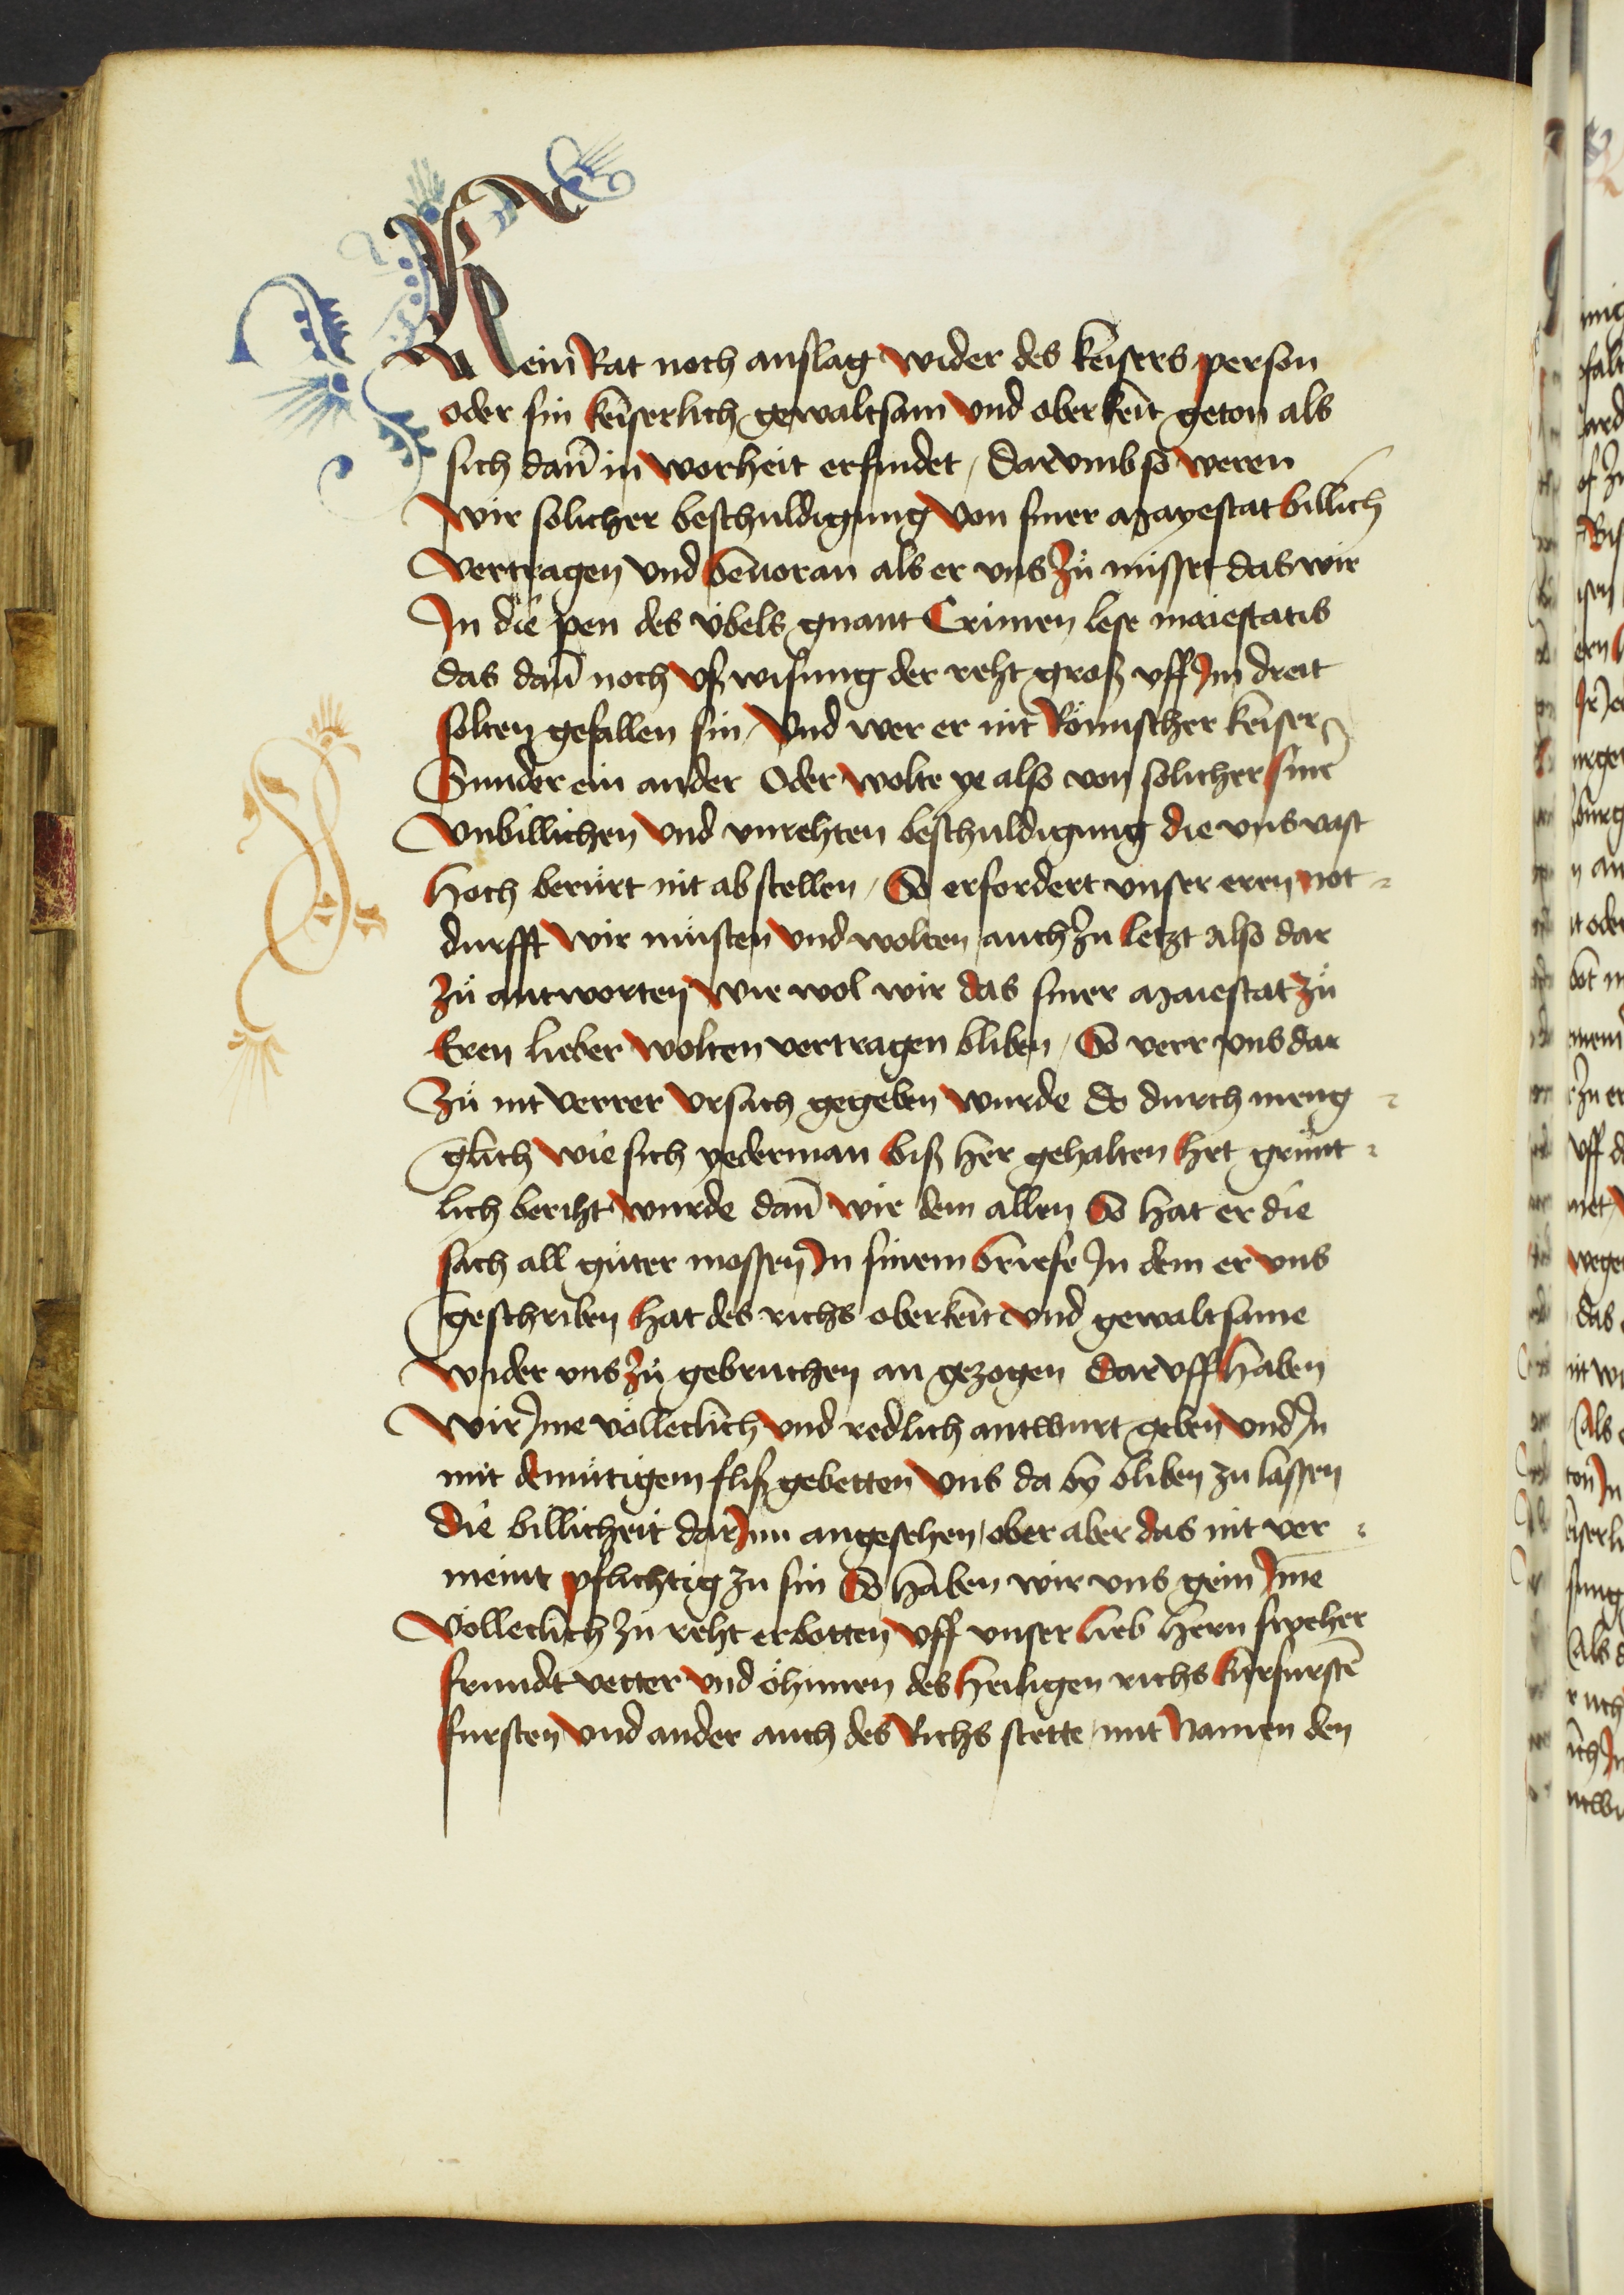 Kein Rat noch anslag wider des keisers person
oder sin keiserlich gewaltsam vnd oberkeit geton als
sich dañ in worheit erfindet / Darvmb so weren
wir solicher beschuldigung von siner mayestat billich
vertragen vnd beuoran als er vns zů misset das wir
In die pen des übels gnant Crimen lese maiestatis
das dañ noch vßwisung der reht groß vff Im dreit
solten gefallen sin / Vnd wer er nit Römischer keiser
Sunder ein ander Oder wolte ye also von solicher sinr̄
vnbillichen vnd vnrehten beschuldigung die vns vast
hoch berürt nit abstellen / So erfordert vnser eren not-
durfft wir müsten vnd wolten auch zu letzt also dar
zů antworten wie wol wir das siner maiestat zů
Eren lieber wolten vertragen bliben / So verr vns dar
Zů nit verrer vrsach gegeben wurde do durch meng-
glich wie sich yederman biß her gehalten het grünt-
lich beriht wurde dañ wir dem allen So hat er die
sach all güter mossen In sinem brieffe In dem er vns
geschriben hat des richs oberkeit vnd gewaltsame
wider vns zů gebruchen an gezogen Darvff haben
wir Ime völleclich vnd redlich antwurt geben vnd In
mit demütigem fliß gebetten vns da by bliben zu lassen
die billicheit dar Inn angesehen / ober aber das nit ver-
meint pflichtig zu sin So haben wir vns gein Ime
völleclich zu reht erbotten vff vnser lieb hern sweher
frundt vetter vnd öhimen des heiligen richs kurfurstē
fursten vnd ander auch des Richs stette mit Namen den